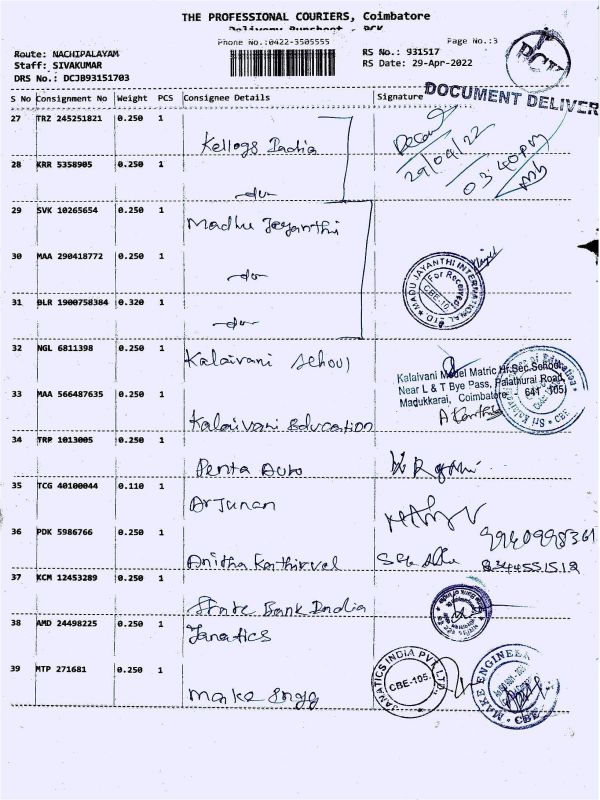 THE PROFESSIONAL COURIERS, Coimbatore
Delivery Runsheet - PCK
Phone No.:0422-3505555
Page No.:3
Route: NACHIPALAYAM
RS No.: 931517
Staff: SIVAKUMAR
RS Date: 29-Apr-2022
DRS No.: DCJB93151703
PCK
DOCUMENT DELIVER
S No Consignment No Weight PCS Consignee Details Signature
27 TRZ 245251821 0.250 1 Kellogs India
29/04/22
03:40pm
28 KRR 5358905 0.250 1 -do-
29 SVK 10265654 0.250 1 Madhu Jayanthi
30 MAA 290418772 0.250 1 -do-
MADU JAYANTHI INTERNATIONAL
For Received
CBE-10
31 BLR 1900758384 0.320 1 -do-
32 NGL 6811398 0.250 1 Kalaivani School
Kalaivani Model Matric Hr.Sec.School,
Near L & T Bye Pass, Palathurai Road,
Madukkarai, Coimbatore 641 105
33 MAA 566487635 0.250 1 Kalaivani Education
34 TRP 1013005 0.250 1 Penta Auto
35 TCG 40100044 0.110 1 Arjunan
36 PDK 5986766 0.250 1 Anitha Karthivel
37 KCM 12453289 0.250 1 State Bank India
38 AMD 24498225 0.250 1 Janatics
39 MTP 271681 0.250 1 Make Engg
JANATICS INDIA PVT. LTD.
CBE-105.
MAKE ENGINEER
CBE